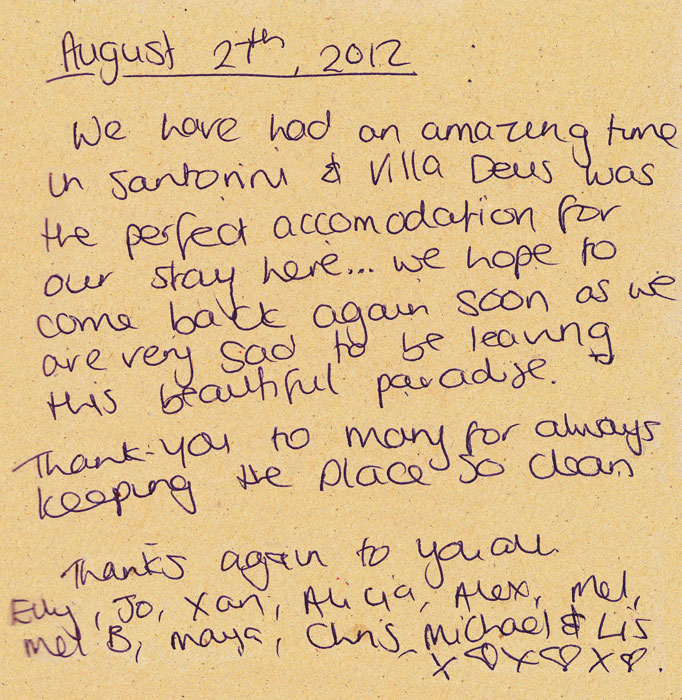 August 27th, 2012
We have had an amazing time
in Santorini & Villa Deus was
the perfect accomodation for
our stay here... we hope to
come back again soon as we
are very sad to be leaving
this beautiful paradise.
Thank-you to mary for always
keeping the place so clean
Thanks again to you all.
Elly, Jo, Xan, Alicia, Alex, Mel,
Mel B, maya, Chris, Michael & Lis
x♡x♡x♡.